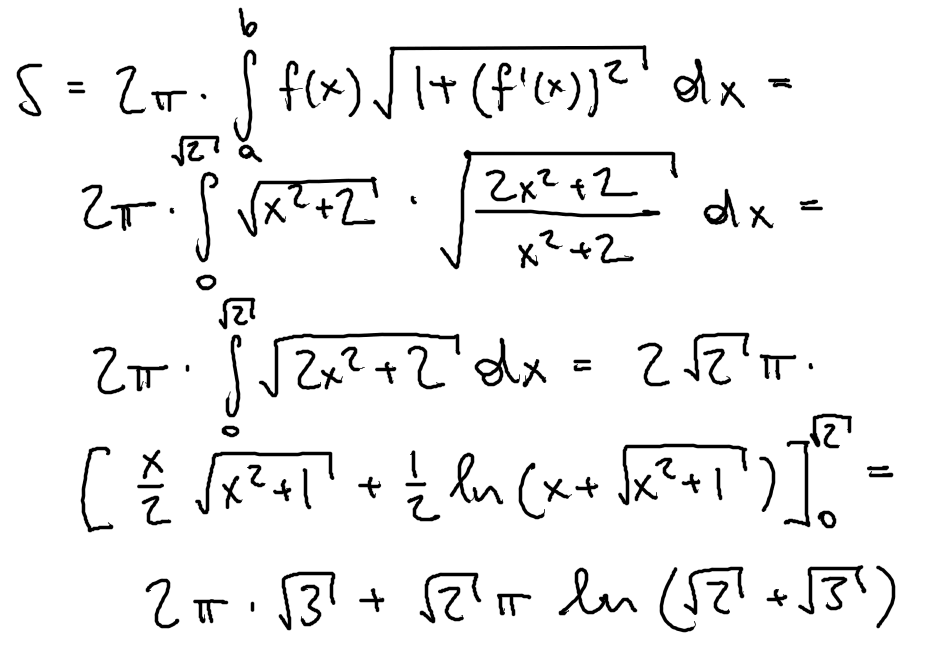 S = 2π · ∫_a^b f(x) √(1+(f'(x))²) dx =
2π · ∫_0^√2 √(x²+2) · √((2x²+2)/(x²+2)) dx =
2π · ∫_0^√2 √(2x²+2) dx = 2√2 π ·
[ x/2 √(x²+1) + 1/2 ln (x+√(x²+1)) ]_0^√2 =
2π · √3 + √2 π ln (√2 + √3)